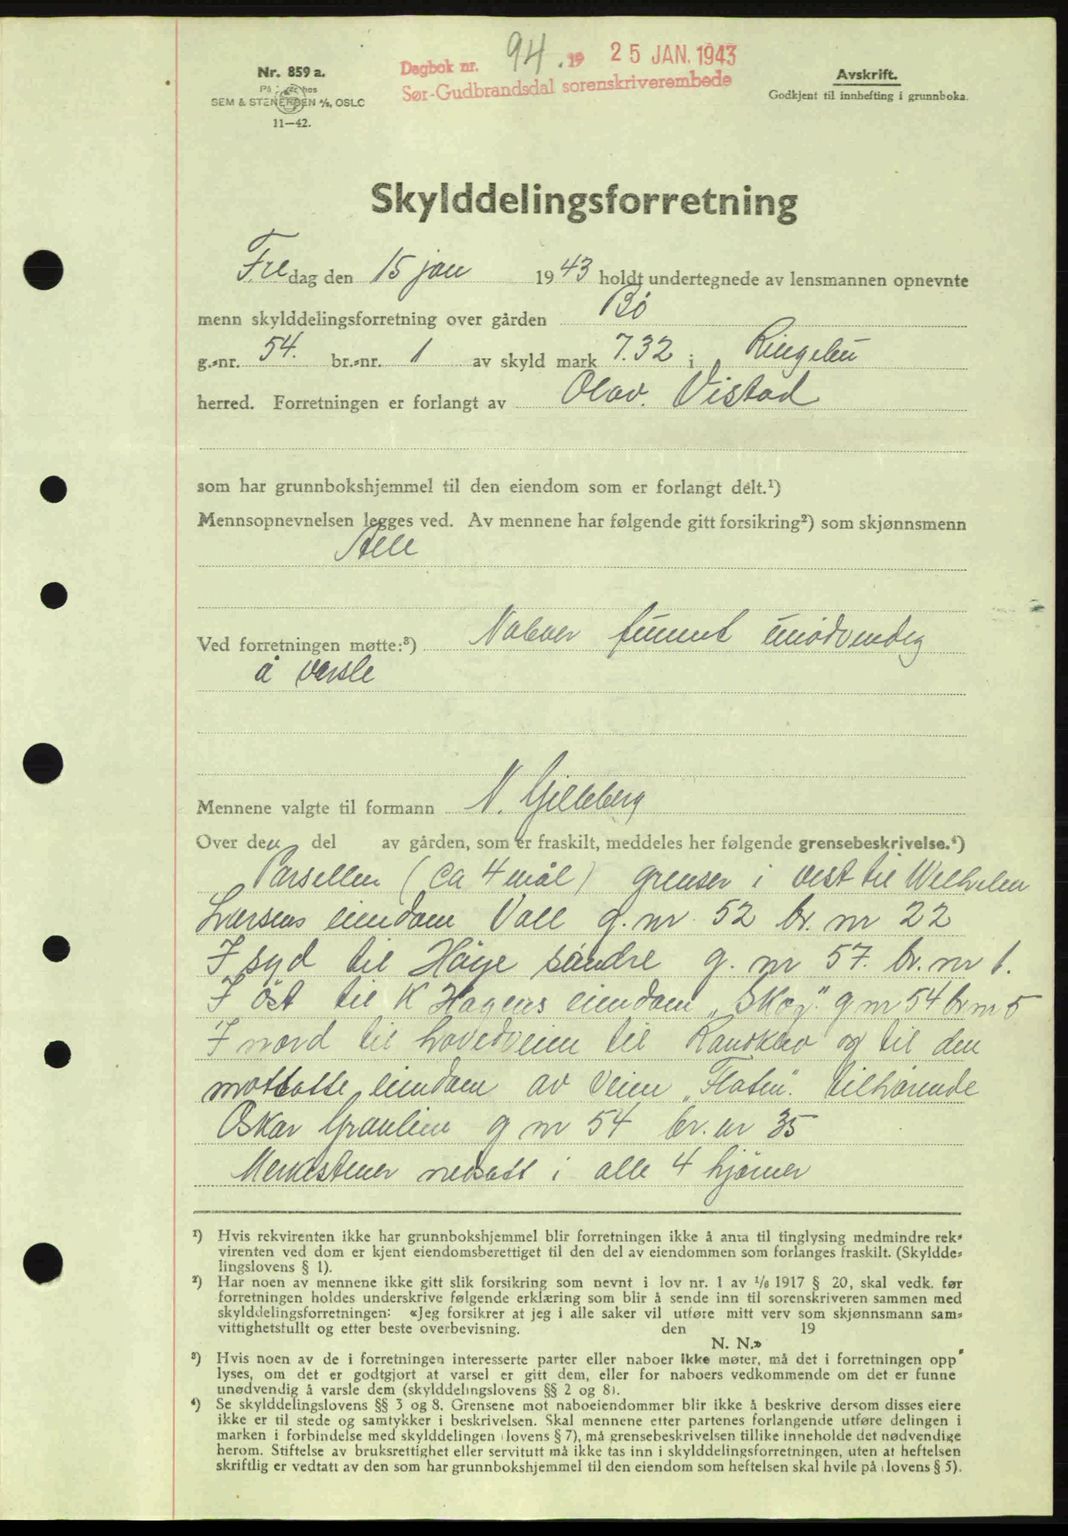 Nr. 859 a.
På lager hos
SEM & STENERSEN A/S, OSLO
11—42.
Dagbok nr. 94. 19 25 JAN. 1943
Sør-Gudbrandsdal sorenskriverembede
Avskrift.
Godkjent til innhefting i grunnboka.
Skylddelingsforretning
Fredag den 15 jan 1943 holdt undertegnede av lensmannen opnevnte
menn skylddelingsforretning over gården Bö
g.-nr. 54. br.-nr. 1 av skyld mark 7.32 i Ringebu
herred. Forretningen er forlangt av Olav. Vistad
som har grunnbokshjemmel til den eiendom som er forlangt delt.¹)
Mennsopnevnelsen legges ved. Av mennene har følgende gitt forsikring²) som skjønnsmenn
Alle
Ved forretningen møtte:³) Naboer funnet unödvendig
å varsle
Mennene valgte til formann N. Gillebberg
Over den del av gården, som er fraskilt, meddeles her følgende grensebeskrivelse.⁴)
Parsellen (ca 4 mål) grenser i vest til Wilhelm
Larsens eiendom Vall g. nr. 52 br. nr 22
I syd til Höye söndre g. nr 57. br. nr 1.
I öst til K Hagens eiendom „Skog" g nr 54 br nr 5
I nord til hovedveien til Ranklev og til den
motsatte eiendom av veien „Flaten". tilhörende
Oskar Graulim g nr 54 br. nr 35
Merkestener nedsatt i alle 4 hjörner
¹) Hvis rekvirenten ikke har grunnbokshjemmel blir forretningen ikke å anta til tinglysing medmindre rek-
virenten ved dom er kjent eiendomsberettiget til den del av eiendommen som forlanges fraskilt. (Skyldde-
lingslovens § 1).
²) Har noen av mennene ikke gitt slik forsikring som nevnt i lov nr. 1 av 1/6 1917 § 20, skal vedk. før
forretningen holdes underskrive følgende erklæring som blir å sende inn til sorenskriveren sammen med
skylddelingsforretningen: «Jeg forsikrer at jeg i alle saker vil utføre mitt verv som skjønnsmann sam-
vittighetsfullt og etter beste overbevisning. den 19
N. N.»
³) Hvis noen av de i forretningen interesserte parter eller naboer ikke møter, må det i forretningen opp
lyses, om det er godtgjort at varsel er gitt dem, eller for naboers vedkommende om det er funne
unødvendig å varsle dem (skylddelingslovens §§ 2 og 8).
⁴) Se skylddelingslovens §§ 3 og 8. Grensene mot naboeiendommer blir ikke å beskrive dersom disses eiere
ikke er til stede og samtykker i beskrivelsen. Skal mennene etter partenes forlangende utføre delingen i
marken i forbindelse med skylddelingen (lovens § 7), må grensebeskrivelsen tillike inneholde det nødvendige
herom. Stiftelse av bruksrettighet eller servitutt må ikke tas inn i skylddelingsforretningen, uten at heftelsen
skriftlig er vedtatt av den som har grunnbokshjemmel til den eiendom som heftelsen skal hvile på (lovens § 5).